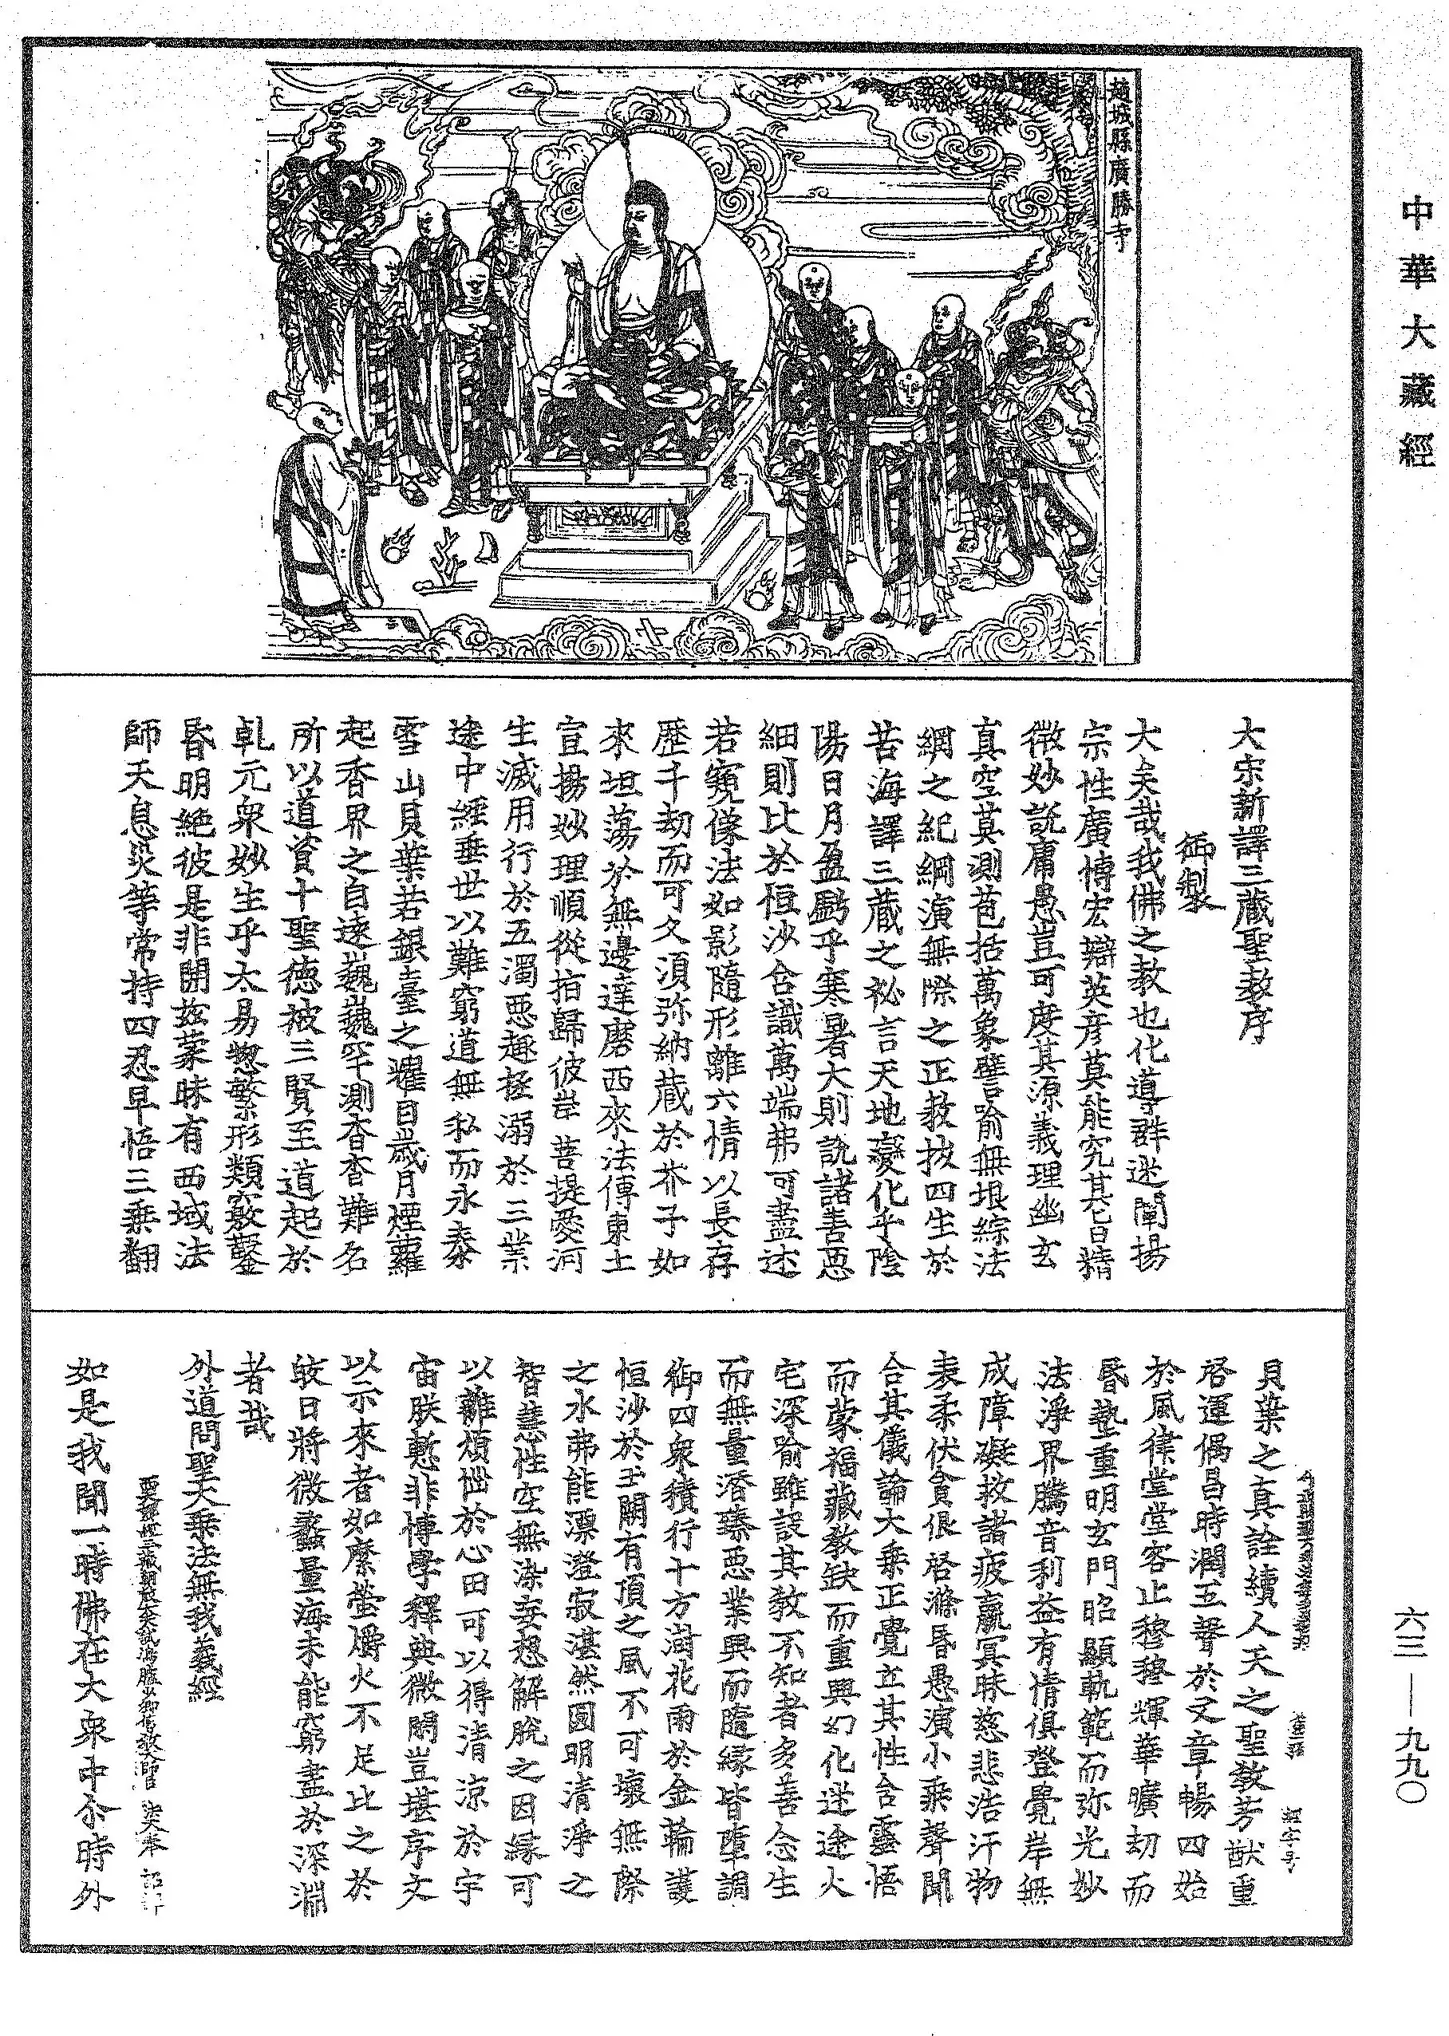 中華大藏經
趙城縣廣勝寺
大宋新譯三藏聖教序
御製
大矣哉我佛之教也化導群迷闡揚
宗性廣博宏辯英彥莫能究其旨精
微妙說庸愚豈可度其源義理幽玄
真空莫測苞括萬象譬喻無垠綜法
網之紀綱演無際之正教拔四生於
苦海譯三藏之祕言天地變化乎陰
陽日月盈虧乎寒暑大則說諸善惡
細則比於恒沙含識萬端弗可盡述
若窺像法如影隨形離六情以長存
歷千劫而可久須弥納藏於芥子如
來坦蕩於無邊達磨西來法傳東土
宣揚妙理順從指歸彼岸菩提愛河
生滅用行於五濁惡趣拯溺於三業
途中經垂世以難窮道無私而永泰
雪山貝葉若銀臺之耀目歲月煙蘿
起香界之自遠巍巍罕測杳杳難名
所以道資十聖德被三賢至道起於
乹元衆妙生乎太易惣繁形類竅鑿
昬明絕彼是非開兹蒙昧有西域法
師天息災等常持四忍早悟三乘翻
貝葉之真詮續人天之聖教芳猷重
啓運偶昌時潤五聲於文章暢四始
於風律堂堂容止穆穆輝華曠劫而
昬蟄重明玄門昭顯軌範而弥光妙
法淨界騰音利益有情俱登覺岸無
成障礙救諸疲羸冥昧慈悲浩汗物
表柔伏貪佷啓滌昬愚演小乘聲聞
合其儀論大乘正覺立其性含靈悟
而蒙福藏教缺而重興幻化迷途火
宅深喻雖設其教不知者多善念生
而無量潛臻惡業興而隨緣皆墮調
御四衆積行十方澍花雨於金輪護
恒沙於玉闕有頂之風不可壞無際
之水弗能漂澄寂湛然圓明清淨之
智慧性空無染妄想解脫之因緣可
以離煩惱於心田可以得清涼於宇
宙朕慙非博學釋典微閑豈堪序文
以示來者如縻螢爝火不足比之於
皎日將微蠡量海未能窮盡於深淵
者哉
外道問聖大乘法無我義經
西天譯經三藏朝散大夫試鴻臚卿傳教大師 法天奉 詔譯
如是我聞一時佛在大衆中尒時外
六三——九九〇